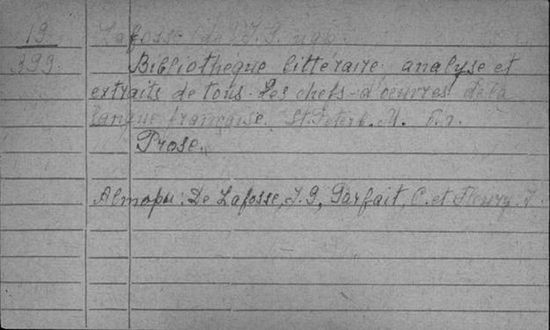 19
399.
Lafosse (de) J. S. и др.
Bibliothèque littéraire: analyse et
extraits de tous les chefs-d'oeuvres de la
langue française. St. Peterb. M. б. г.
Prose.
Авторы: De Lafosse, J. S, Parfait, C. et Fleury. J.